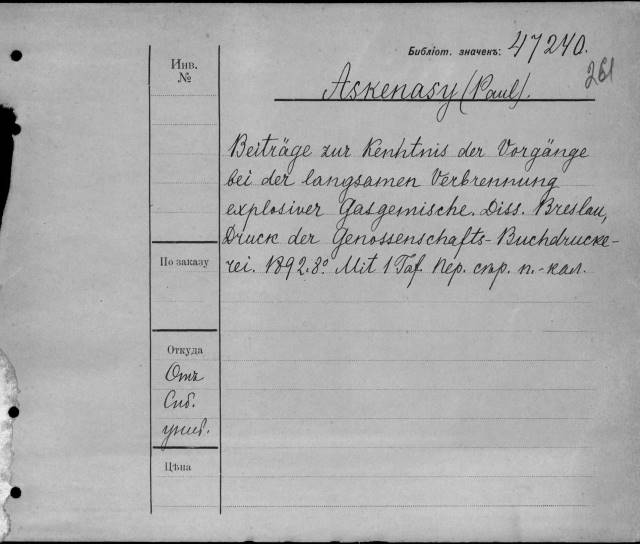 Библіот. значекъ: 47240.
261
Инв.
№
Askenasy (Paul).
Beiträge zur Kenntnis der Vorgänge
bei der langsamen Verbrennung
explosiver Gasgemische. Diss. Breslau,
Druck der Genossenschafts-Buchdrucke-
rei. 1892. 8° Mit 1 Taf. Пер. стр. п.-кал.
По заказу
Откуда
Отъ
Сиб.
унив.
Цѣна